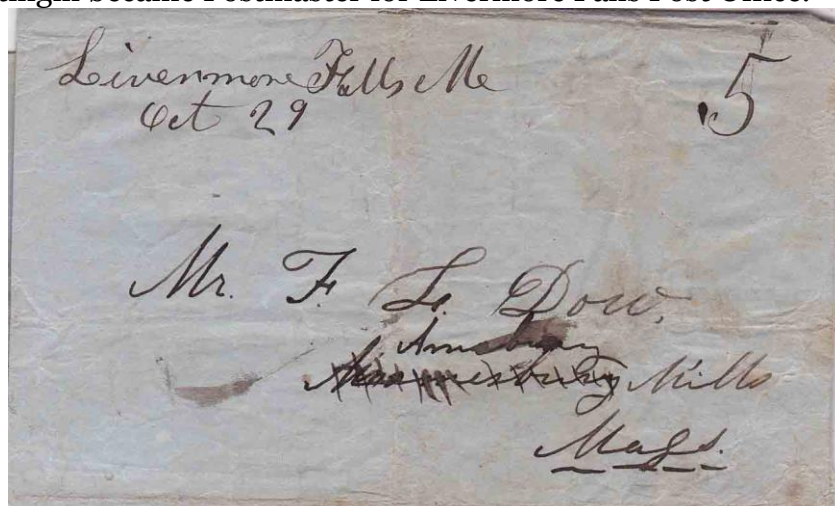 became Postmaster for Livermore Falls Post Office.
Livermore Falls Me
Oct 29
5
Mr. F. L. Dow.
Amesbury
Mills
Mass.